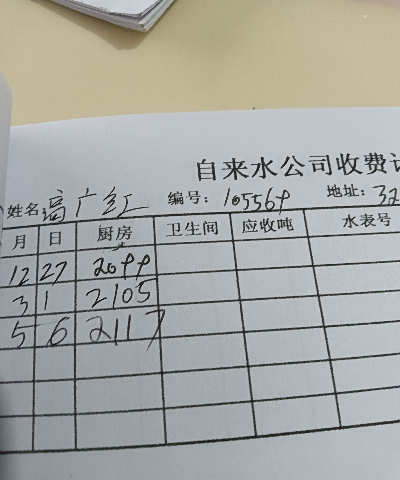 自来水公司收费
姓名:高广红 编号:105569 地址:32
月 日 厨房 卫生间 应收吨 水表号
12 27 2099
3 1 2105
5 6 2117